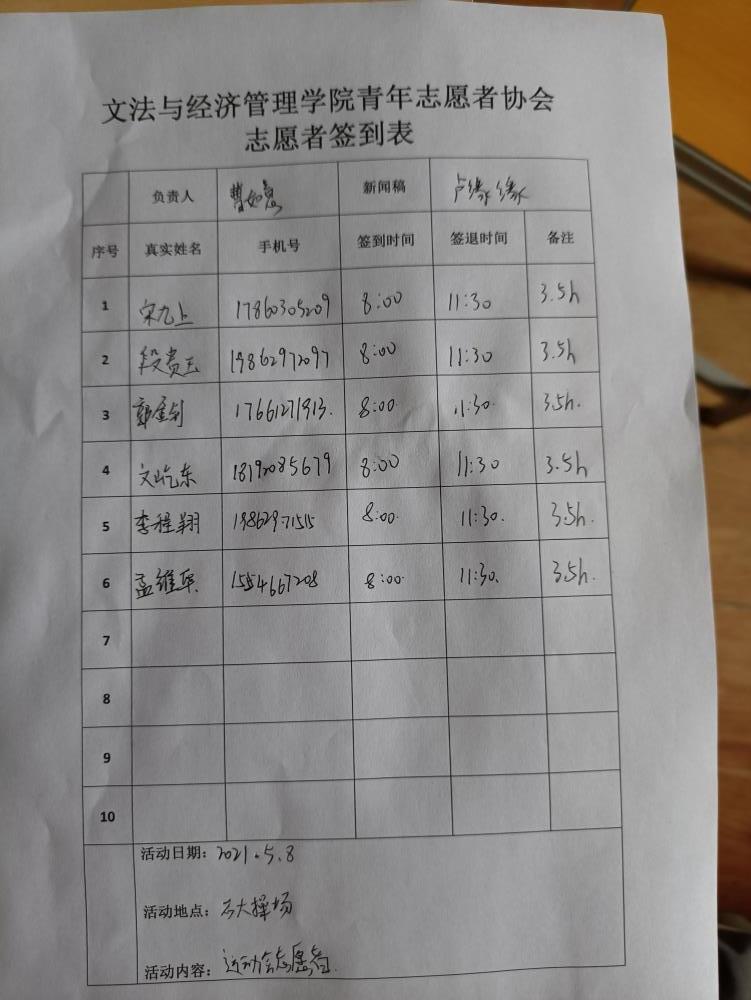 文法与经济管理学院青年志愿者协会
志愿者签到表
负责人 曹如意 新闻稿 卢缘缘
序号 真实姓名 手机号 签到时间 签退时间 备注
1 宋九上 17860305209 8:00 11:30 3.5h
2 段贵玉 19862972097 8:00 11:30 3.5h
3 17661271913. 8:00 11:30 3.5h.
4 文屹东 18192085679 8:00 11:30 3.5h
5 李程翔 19862971515 8:00 11:30. 3.5h.
6 孟维军 1554667208 8:00 11:30. 3.5h.
7
8
9
10
活动日期: 2021.5.8
活动地点: 石大操场
活动内容: 运动会志愿者.